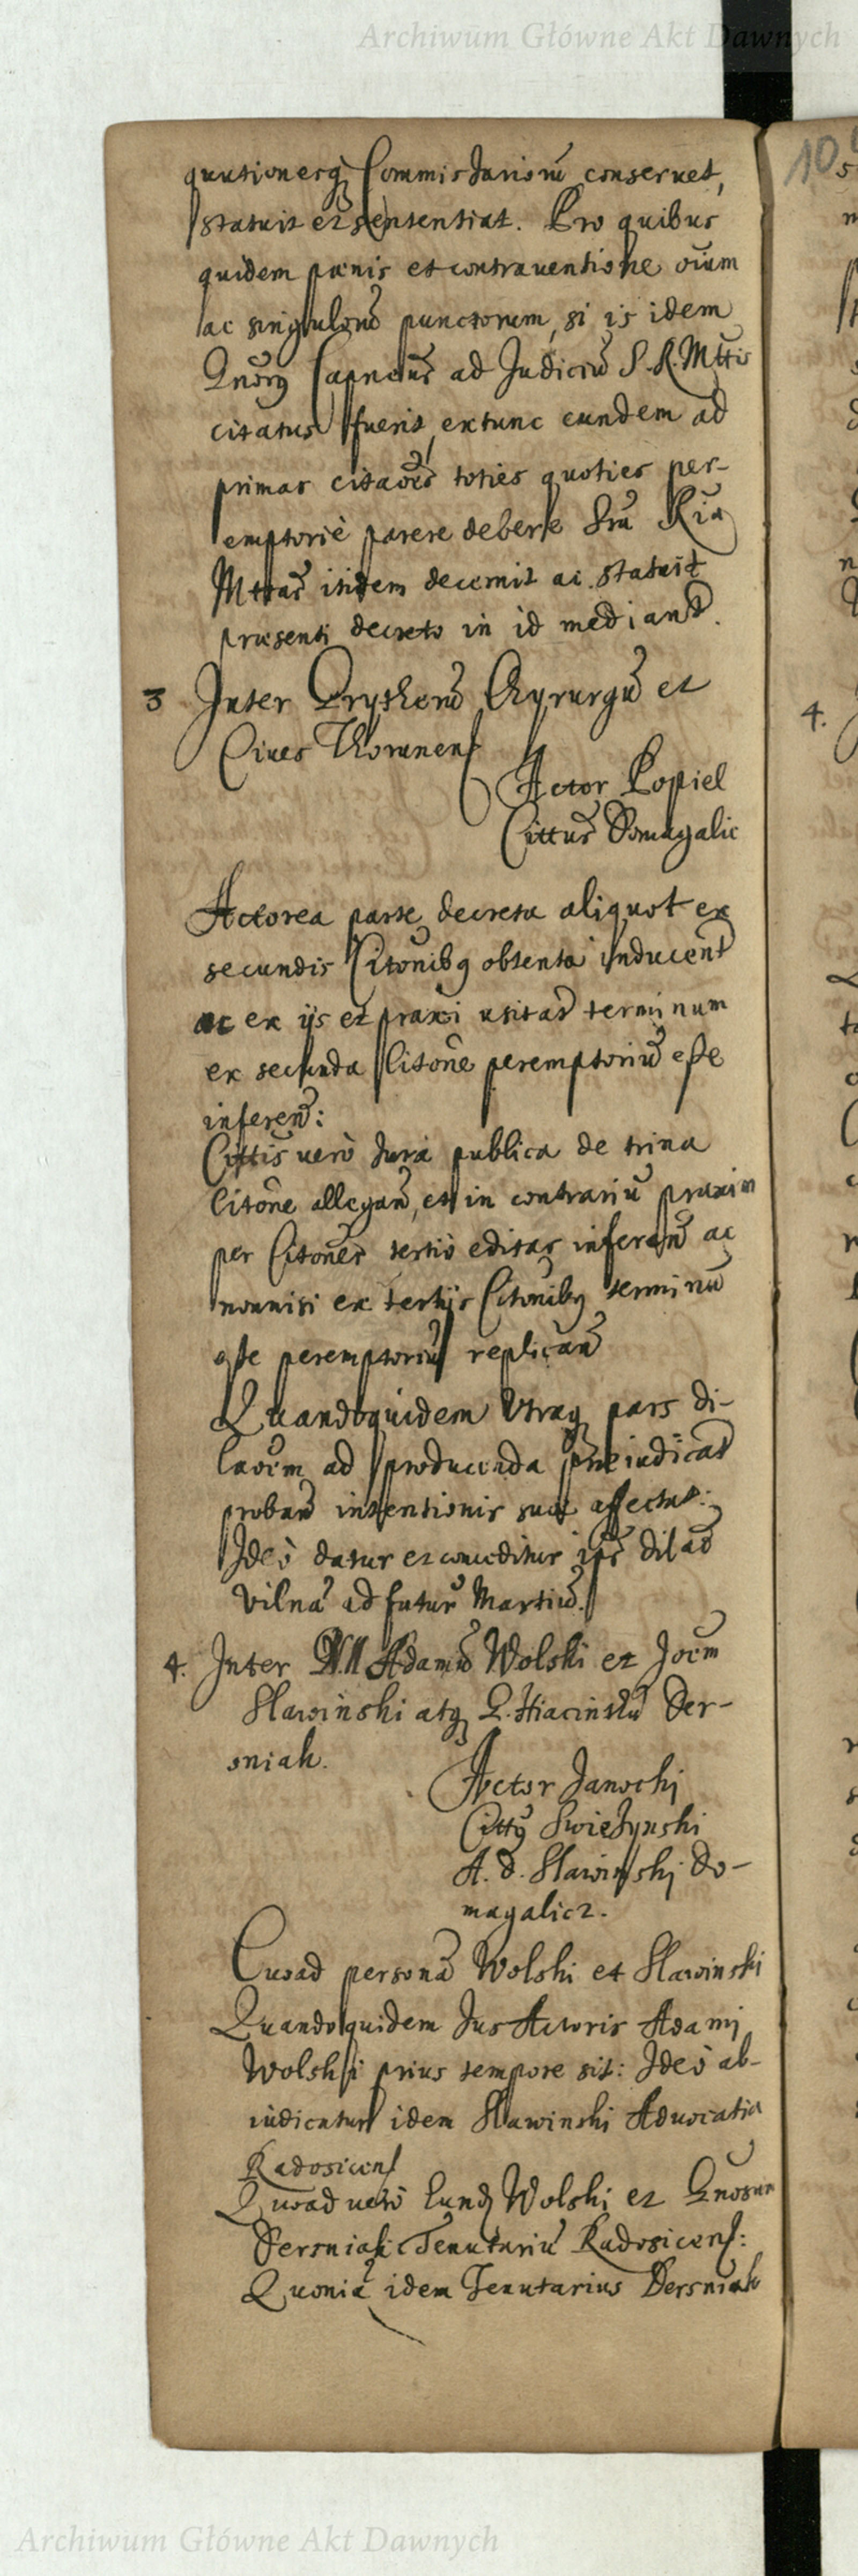 Archiwum Główne Akt Dawnych
10
qutionesq Commissariorū conservet,
statuit et sententiat. Pro quibus
quidem pœnis et contraventione oīum
ac singulorū punctorum, si is idem
Gnōsq Capneus ad Judiciū S. R. Mttis
citatus fuerit, extunc eundem ad
primas citaōēs toties quoties per-
emptoriè parere debere Srā Ria
Mttas itidem decernit ac statuit
præsenti decreto in id mediant.
3 Inter Chyrurgū et
Cives Thorunens
Actor Popiel
Cittus Domagalic
Actorea parte decreta aliquot ex
secundis Citōnibq obtenta inducent
ac ex ijs et praxi usitat terminum
ex secunda Citōne peremptoriū esse
inferen:
Cittis verò Jura publica de trina
Citōne allegan, et in contrariū praxim
per Citōnes tertiò editas inferen ac
nonnisi ex tertijs Citōnibq terminū
esse peremptoriū replican
Quandoquidem Utraq pars di-
laōēm ad producenda præiudicat
proban intentionis suæ affectat:
Ideò datur et conceditur ipis dilao
Vilnā ad futur Martiū.
4. Inter NN Adamū Wolski et Joēm
Slawinski atq G. Hiacinthū Der-
sniak.
Actor Janocki
Cittq Swiezynski
A. d. Slawinski Do-
magalicz.
Quoad personā Wolski et Slawinski
Quandoquidem Jus Actoris Adami
Wolski prius tempore sit: Ideò ab-
iudicatur idem Slawinski Advocatia
Radosicens
Quoad verò Eund Wolski et Gnosum
Dersniak Tenutariū Radosicens:
Quoniā idem Tenutarius Dersniak
4.
Archiwum Główne Akt Dawnych